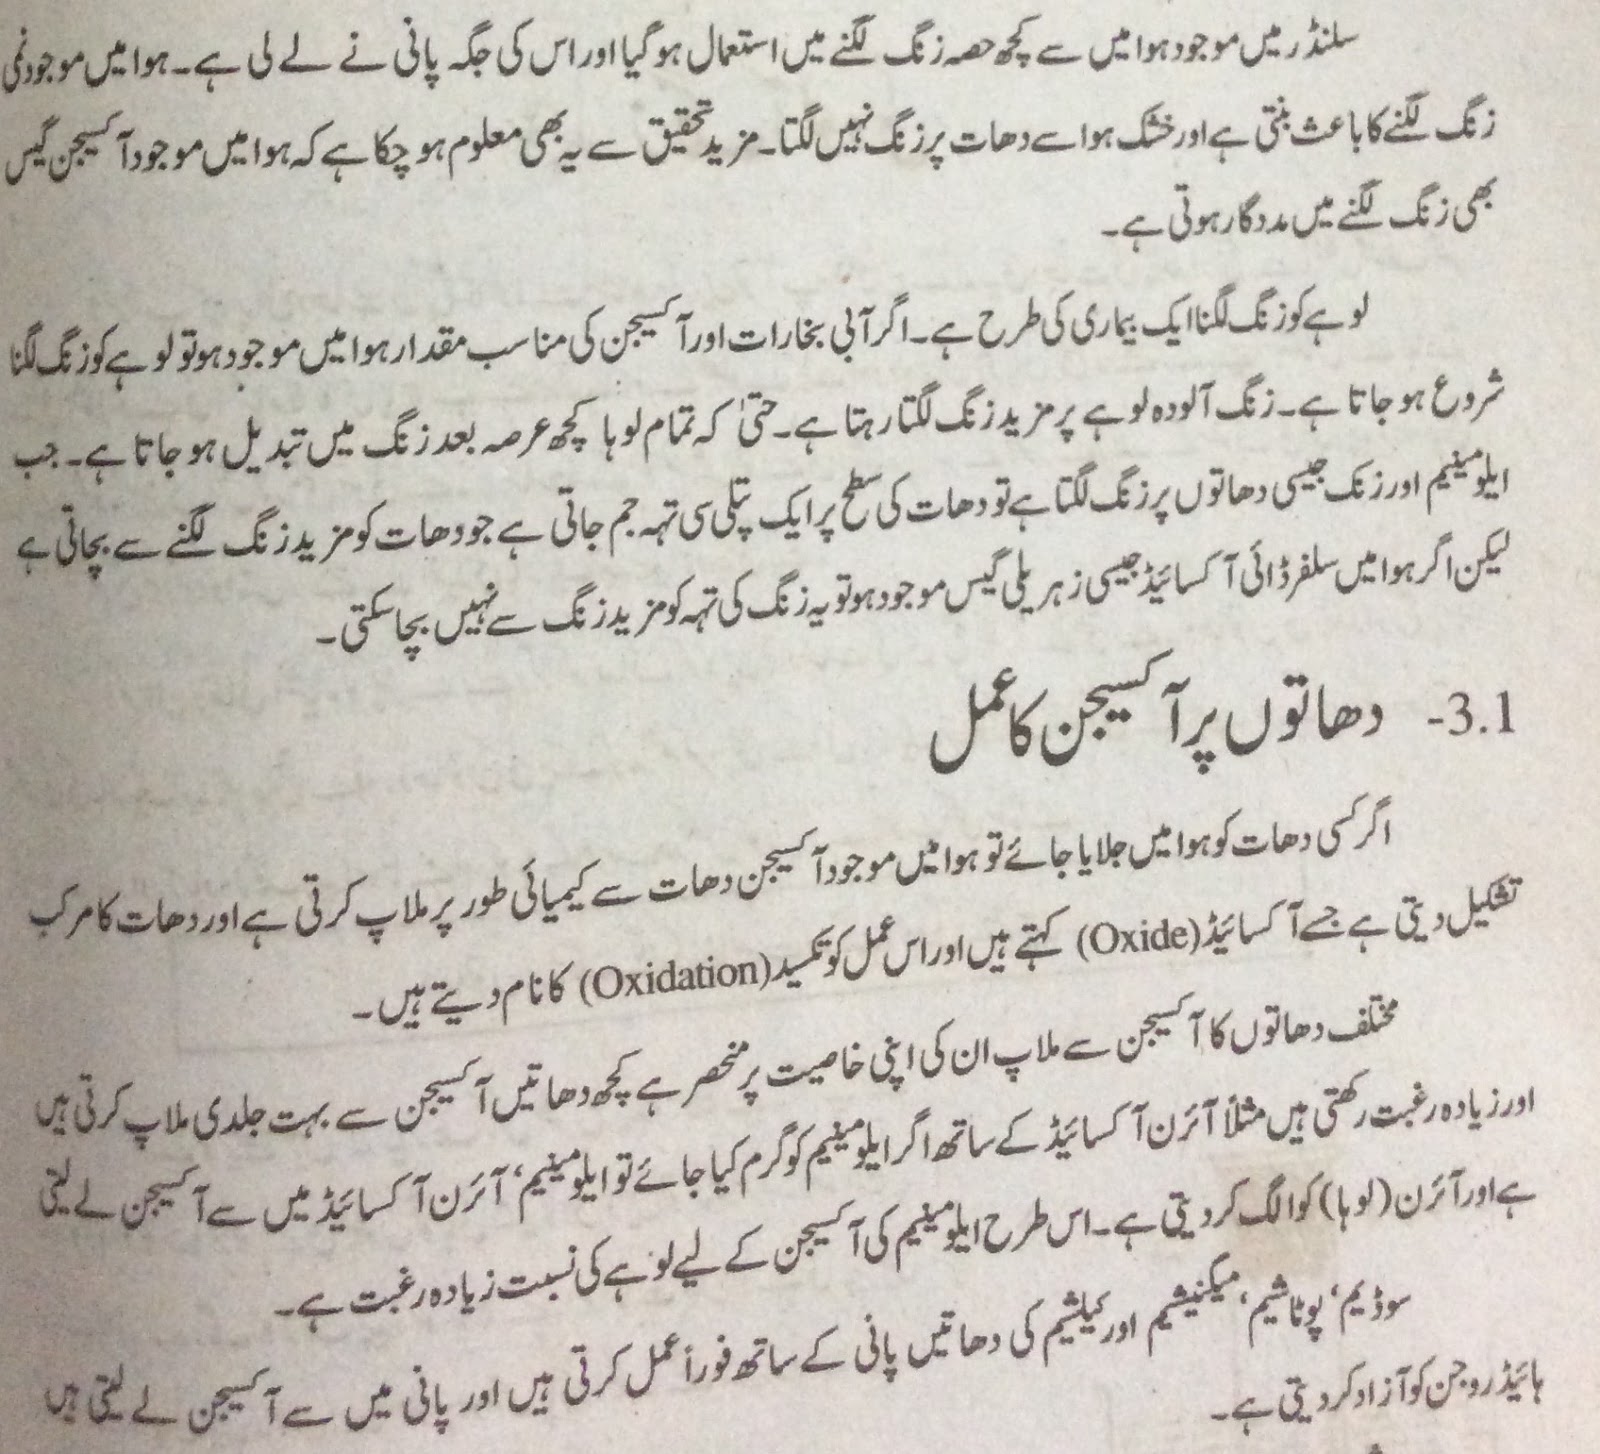 سلنڈر میں موجود ہوا میں سے کچھ حصہ زنگ لگنے میں استعمال ہو گیا اور اس کی جگہ پانی نے لے لی ہے۔ ہوا میں موجود نمی
زنگ لگنے کا باعث بنتی ہے اور خشک ہوا سے دھات پر زنگ نہیں لگتا۔ مزید تحقیق سے یہ بھی معلوم ہو چکا ہے کہ ہوا میں موجود آکسیجن گیس
بھی زنگ لگنے میں مددگار ہوتی ہے۔
لوہے کو زنگ لگنا ایک بیماری کی طرح ہے۔ اگر آبی بخارات اور آکسیجن کی مناسب مقدار ہوا میں موجود ہو تو لوہے کو زنگ لگنا
شروع ہو جاتا ہے۔ زنگ آلودہ لوہے پر مزید زنگ لگتا رہتا ہے۔ حتیٰ کہ تمام لوہا کچھ عرصہ بعد زنگ میں تبدیل ہو جاتا ہے۔ جب
ایلومینیم اور زنک جیسی دھاتوں پر زنگ لگتا ہے تو دھات کی سطح پر ایک پتلی سی تہہ جم جاتی ہے جو دھات کو مزید زنگ لگنے سے بچاتی ہے
لیکن اگر ہوا میں سلفر ڈائی آکسائیڈ جیسی زہریلی گیس موجود ہو تو یہ زنگ کی تہہ کو مزید زنگ سے نہیں بچا سکتی۔
3.1- دھاتوں پر آکسیجن کا عمل
اگر کسی دھات کو ہوا میں جلایا جائے تو ہوا میں موجود آکسیجن دھات سے کیمیائی طور پر ملاپ کرتی ہے اور دھات کا مرکب
تشکیل دیتی ہے جسے آکسائیڈ (Oxide) کہتے ہیں اور اس عمل کو تکسید (Oxidation) کا نام دیتے ہیں۔
مختلف دھاتوں کا آکسیجن سے ملاپ ان کی اپنی خاصیت پر منحصر ہے کچھ دھاتیں آکسیجن سے بہت جلدی ملاپ کرتی ہیں
اور زیادہ رغبت رکھتی ہیں مثلاً آئرن آکسائیڈ کے ساتھ اگر ایلومینیم کو گرم کیا جائے تو ایلومینیم، آئرن آکسائیڈ میں سے آکسیجن لے لیتی
ہے اور آئرن (لوہا) کو الگ کر دیتی ہے۔ اس طرح ایلومینیم کی آکسیجن کے لیے لوہے کی نسبت زیادہ رغبت ہے۔
سوڈیم، پوٹاشیم، میگنیشیم اور کیلشیم کی دھاتیں پانی کے ساتھ فوراً عمل کرتی ہیں اور پانی میں سے آکسیجن لے لیتی ہیں
ہائیڈروجن کو آزاد کر دیتی ہے۔